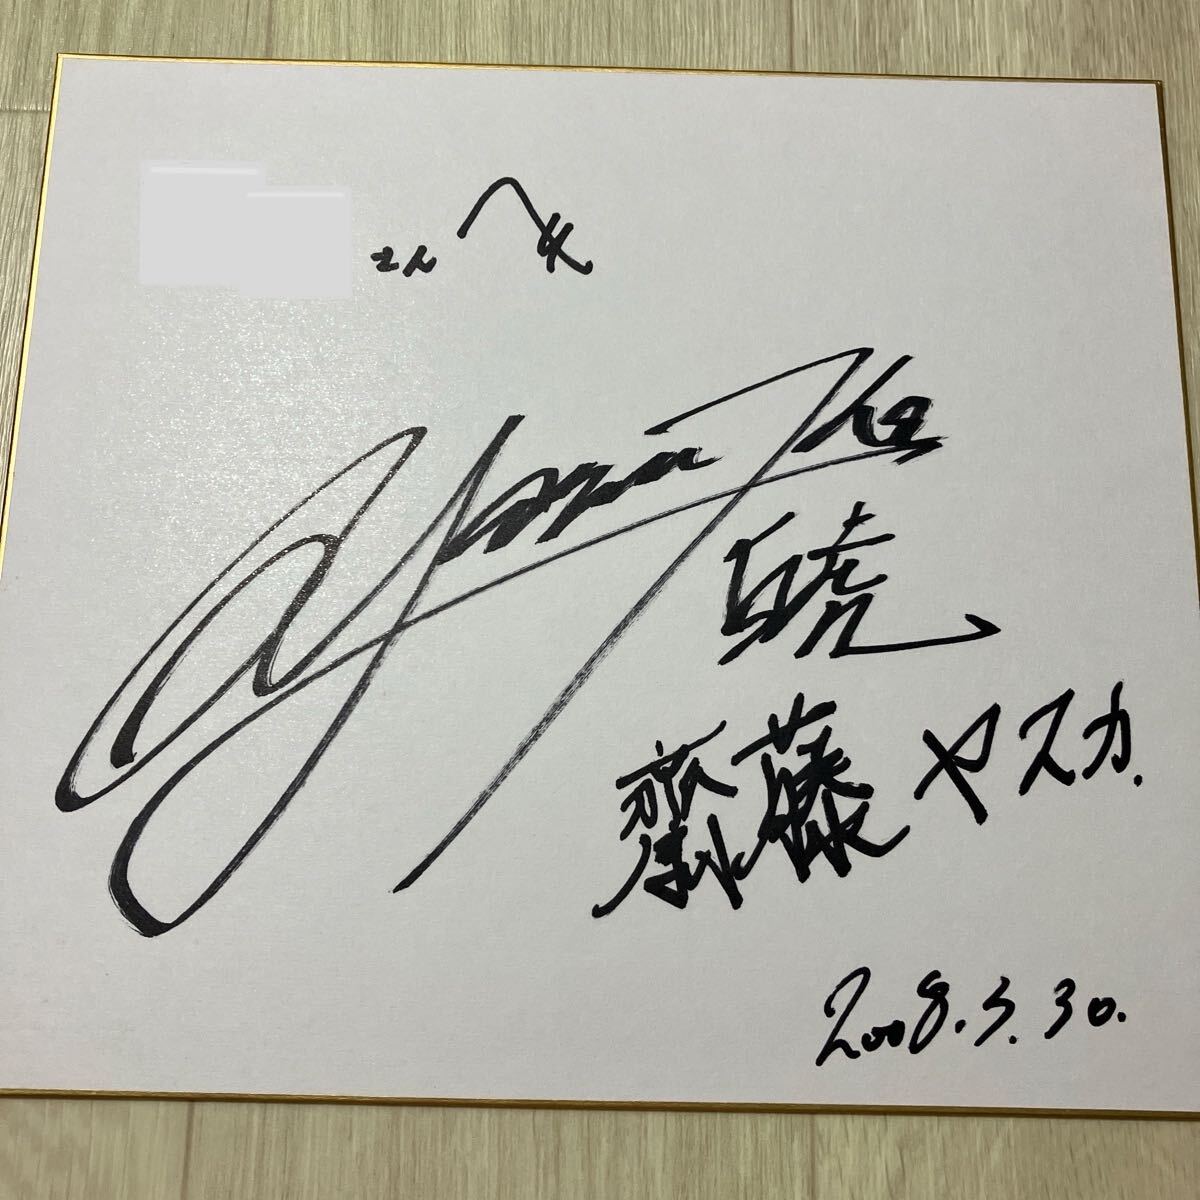 さんへ
Yasuka
暁
齋藤ヤスカ.
2008.3.30.